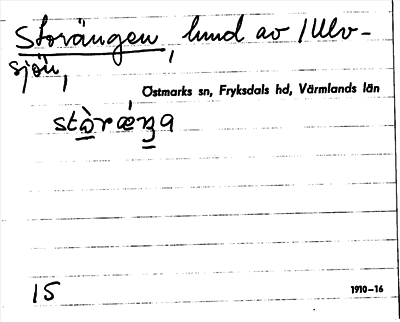 Storängen, lund av / Ulv-
sjön,
Östmarks sn, Fryksdals hd, Värmlands län
stòrǽŋa
15
1910–16